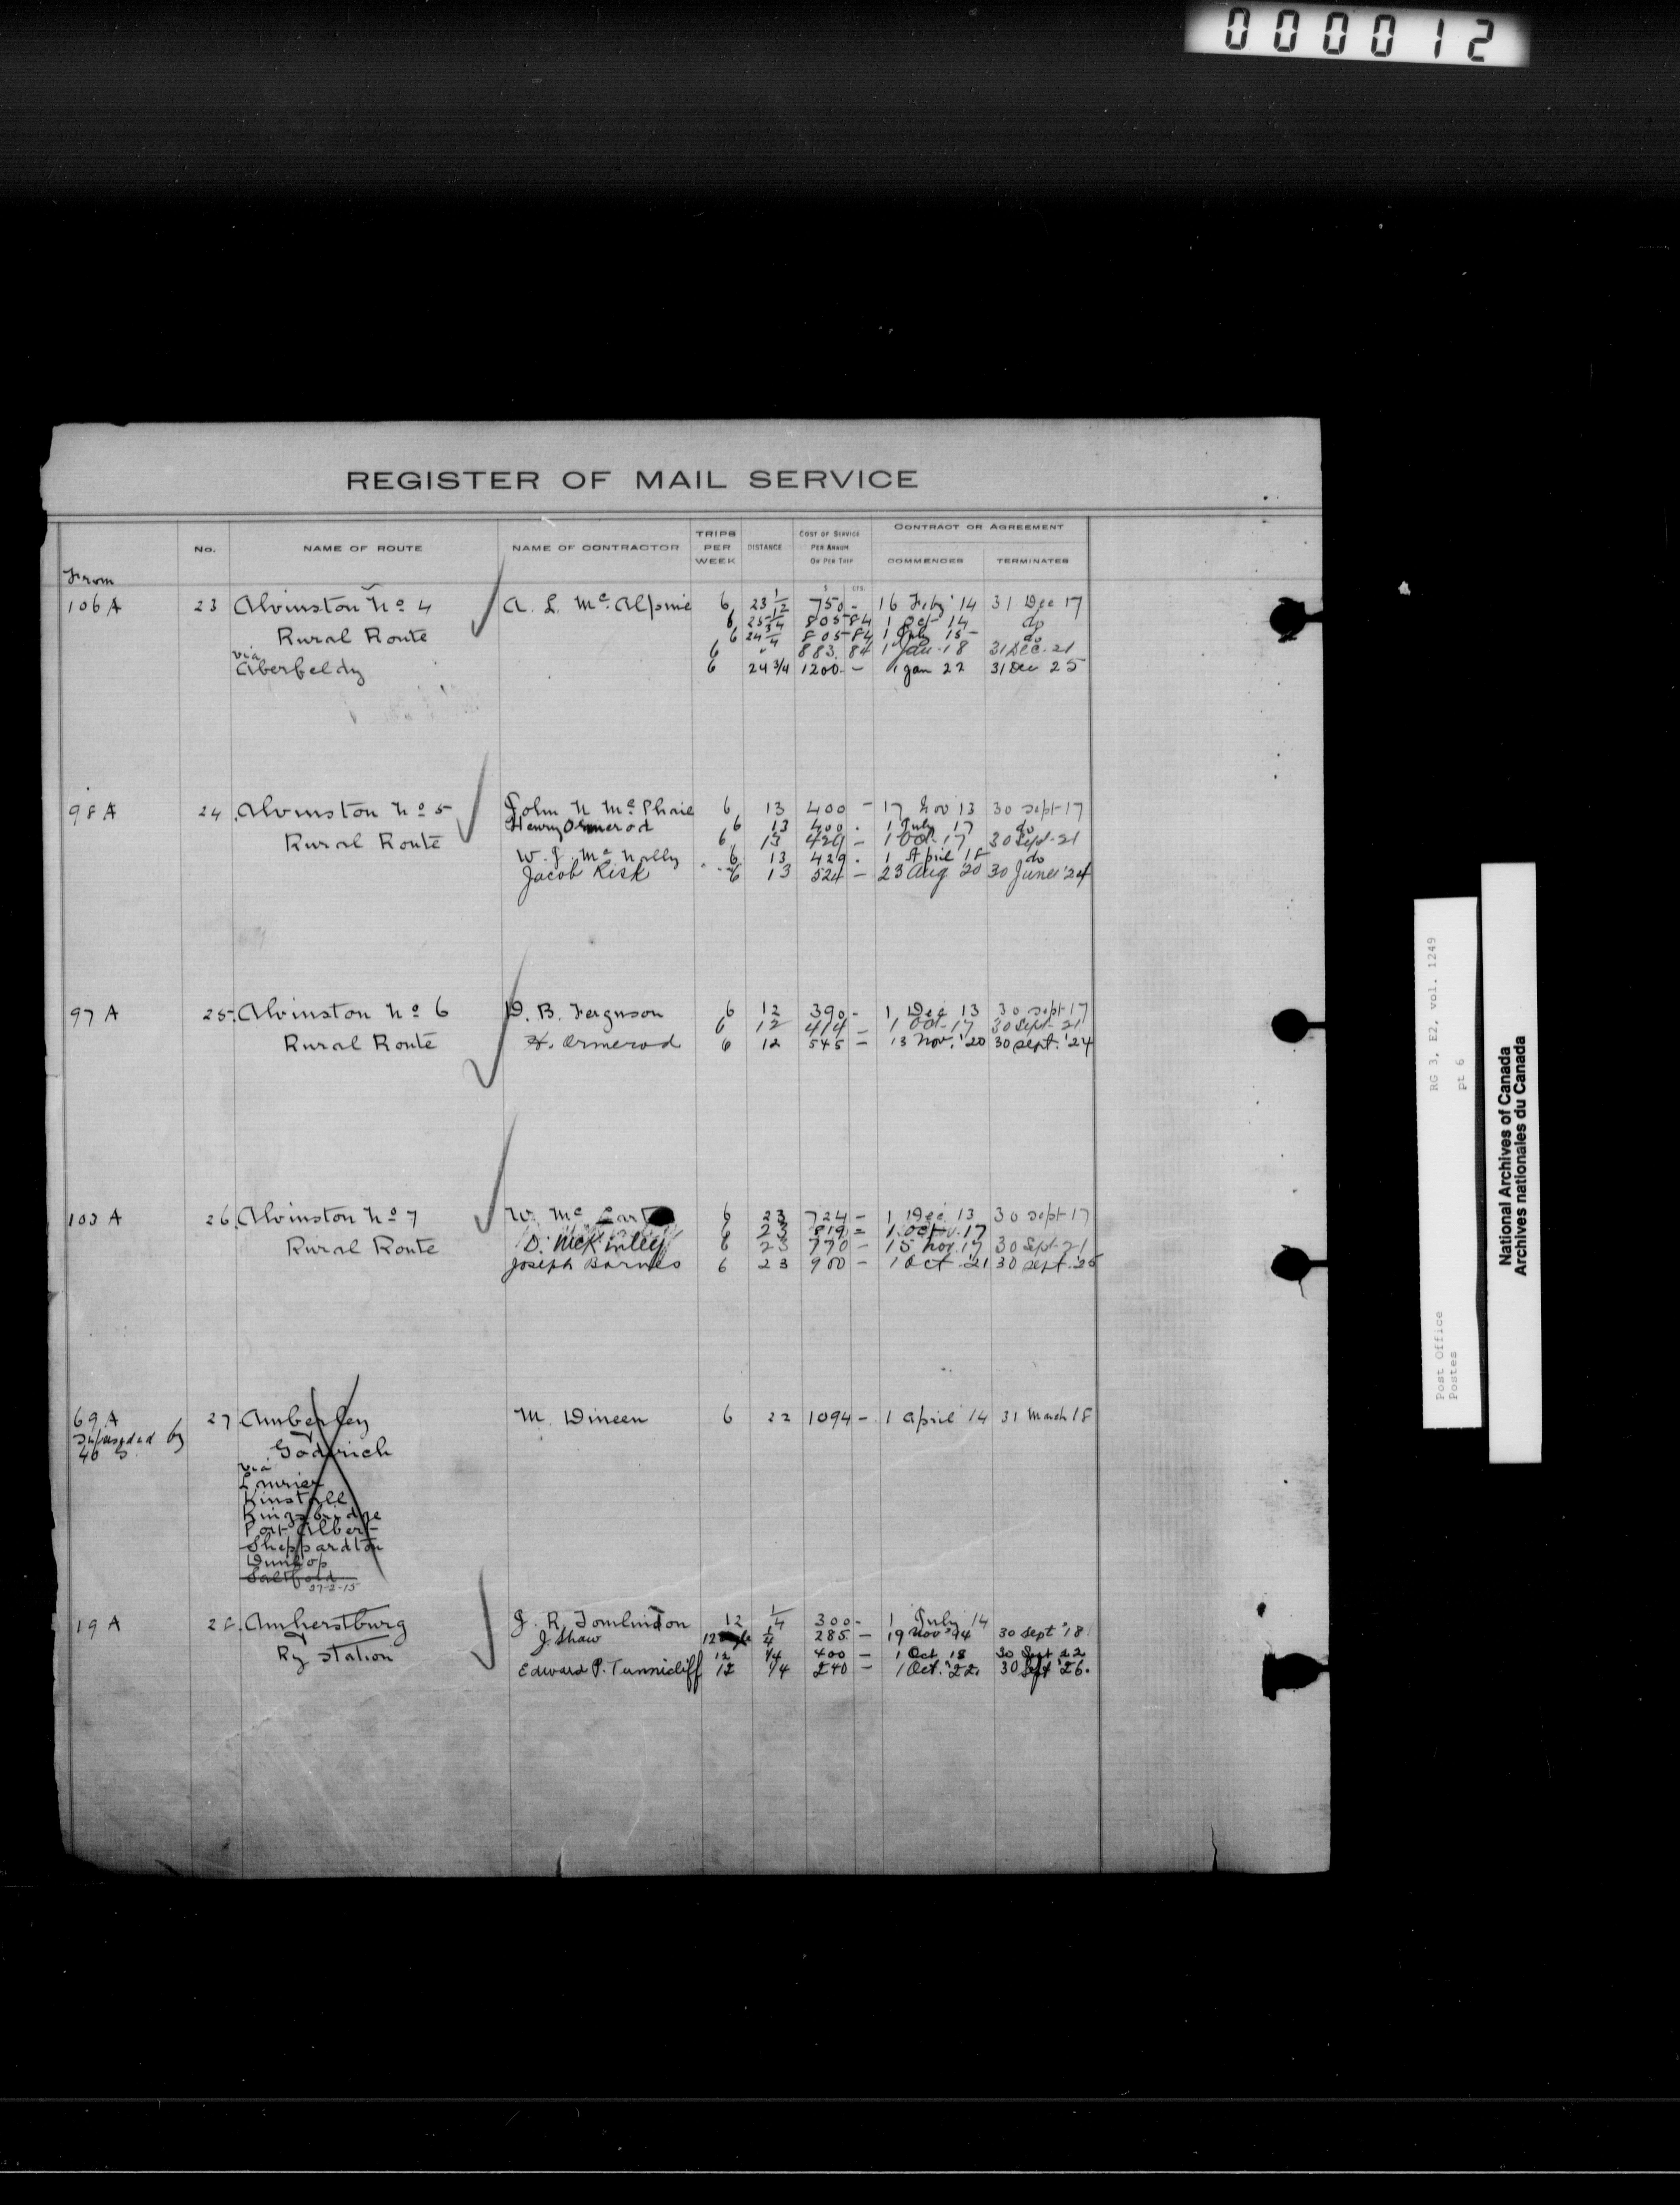 000012
REGISTER OF MAIL SERVICE
From No. NAME OF ROUTE NAME OF CONTRACTOR TRIPS PER WEEK DISTANCE COST OF SERVICE PER ANNUM OR PER TRIP CONTRACT OR AGREEMENT COMMENCES TERMINATES
$ CTS.
106 A 23 Alvinston No 4 A. L. Mc Alpine 6 23 1/2 750 - 16 Feby '14 31 Dec 17
6 25 1/4 805 84 1 Oct 14 do
Rural Route 6 24 3/4 805 84 1 July 15 do
via 6 " 883. 84 1 Jan. 18 31 Dec. 21
Aberfeldy 6 24 3/4 1200 - 1 Jan 22 31 Dec 25
98 A 24. Alvinston No 5 John N Mc Phaie 6 13 400 - 17 Nov 13 30 Sept 17
Henry Ormerod 6 13 400 . 1 July 17 do
Rural Route 6 13 429 - 1 Oct. 17 30 Sept. 21
W. J. Mc Nally 6 13 429 . 1 April 18 do
Jacob Risk 6 13 524 - 23 Aug '20 30 June '24
97 A 25. Alvinston No 6 D. B. Ferguson 6 12 390 - 1 Dec 13 30 Sept 17
6 12 414 - 1 Oct. 17 30 Sept. 21
Rural Route H. Ormerod 6 12 545 - 13 Nov. '20 30 Sept. '24
103 A 26. Alvinston No 7 W. Mc 6 23 724 - 1 Dec. 13 30 Sept 17
6 23 819 = 1 Oct. 17
Rural Route D. McKinley 6 23 770 - 15 Nov. 17 30 Sept. 21
Joseph Barnes 6 23 900 - 1 Oct. 21 30 Sept. '25
69 A 27. Amberley M. Dineen 6 22 1094 - 1 April 14 31 March 18
Superseded by
40 Goderich
via
Lurier
Kintail
Kingsbridge
Port Albert
Sheppardton
Dunlop
Saltford
27-2-15
19 A 28. Amherstburg J. R. Tomlinson 12 1/4 300 - 1 July 14
J. Shaw 12 1/4 285 - 19 Nov '14 30 Sept '18
Ry Station 12 1/4 400 - 1 Oct 18 30 Sept 22
Edward P. Tunnicliff 12 1/4 240 - 1 Oct. '22. 30 Sept '26.
RG 3, E2, vol. 1249
pt 6
Post Office
Postes
National Archives of Canada
Archives nationales du Canada